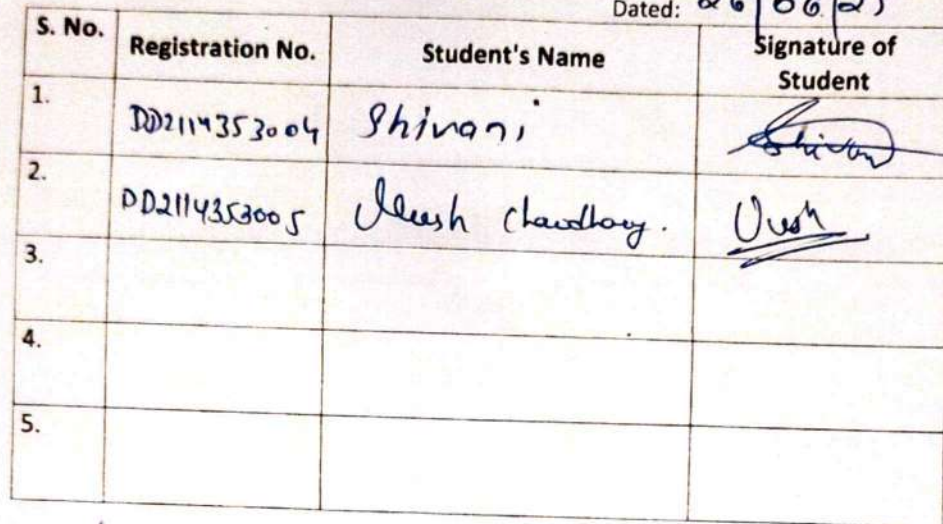 Dated: 26/06/2
S. No. Registration No. Student's Name Signature of Student
1. DD2114353004 Shivani Shivani
2. DD2114353005 Chaudhary. Vush
3.
4.
5.